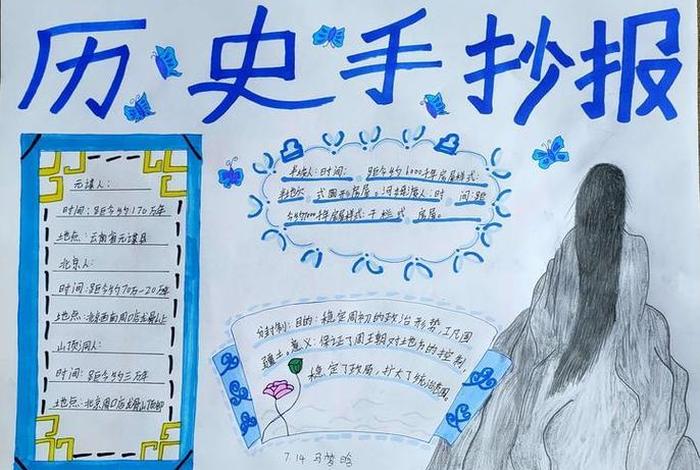 历史手抄报
元谋人:
时间:距今约170万年
地点:云南省元谋县
北京人:
时间:距今约70万-20万年
地点:北京西南周口店龙骨山上
山顶洞人:
时间:距今约三万年
地点:北京周口店龙骨山顶部
半坡人:时间: 距今约6000年房屋样式:
半地穴 式圆形房屋,河姆渡人:时 间:距
今约7000年房屋样式:干栏式 房屋。
分封制:目的:稳定周初的政治形势 巩固
疆土。意义:保证了周王朝对地方的控制,
稳定了政局,扩大了统治范围。
7.14 马梦晗